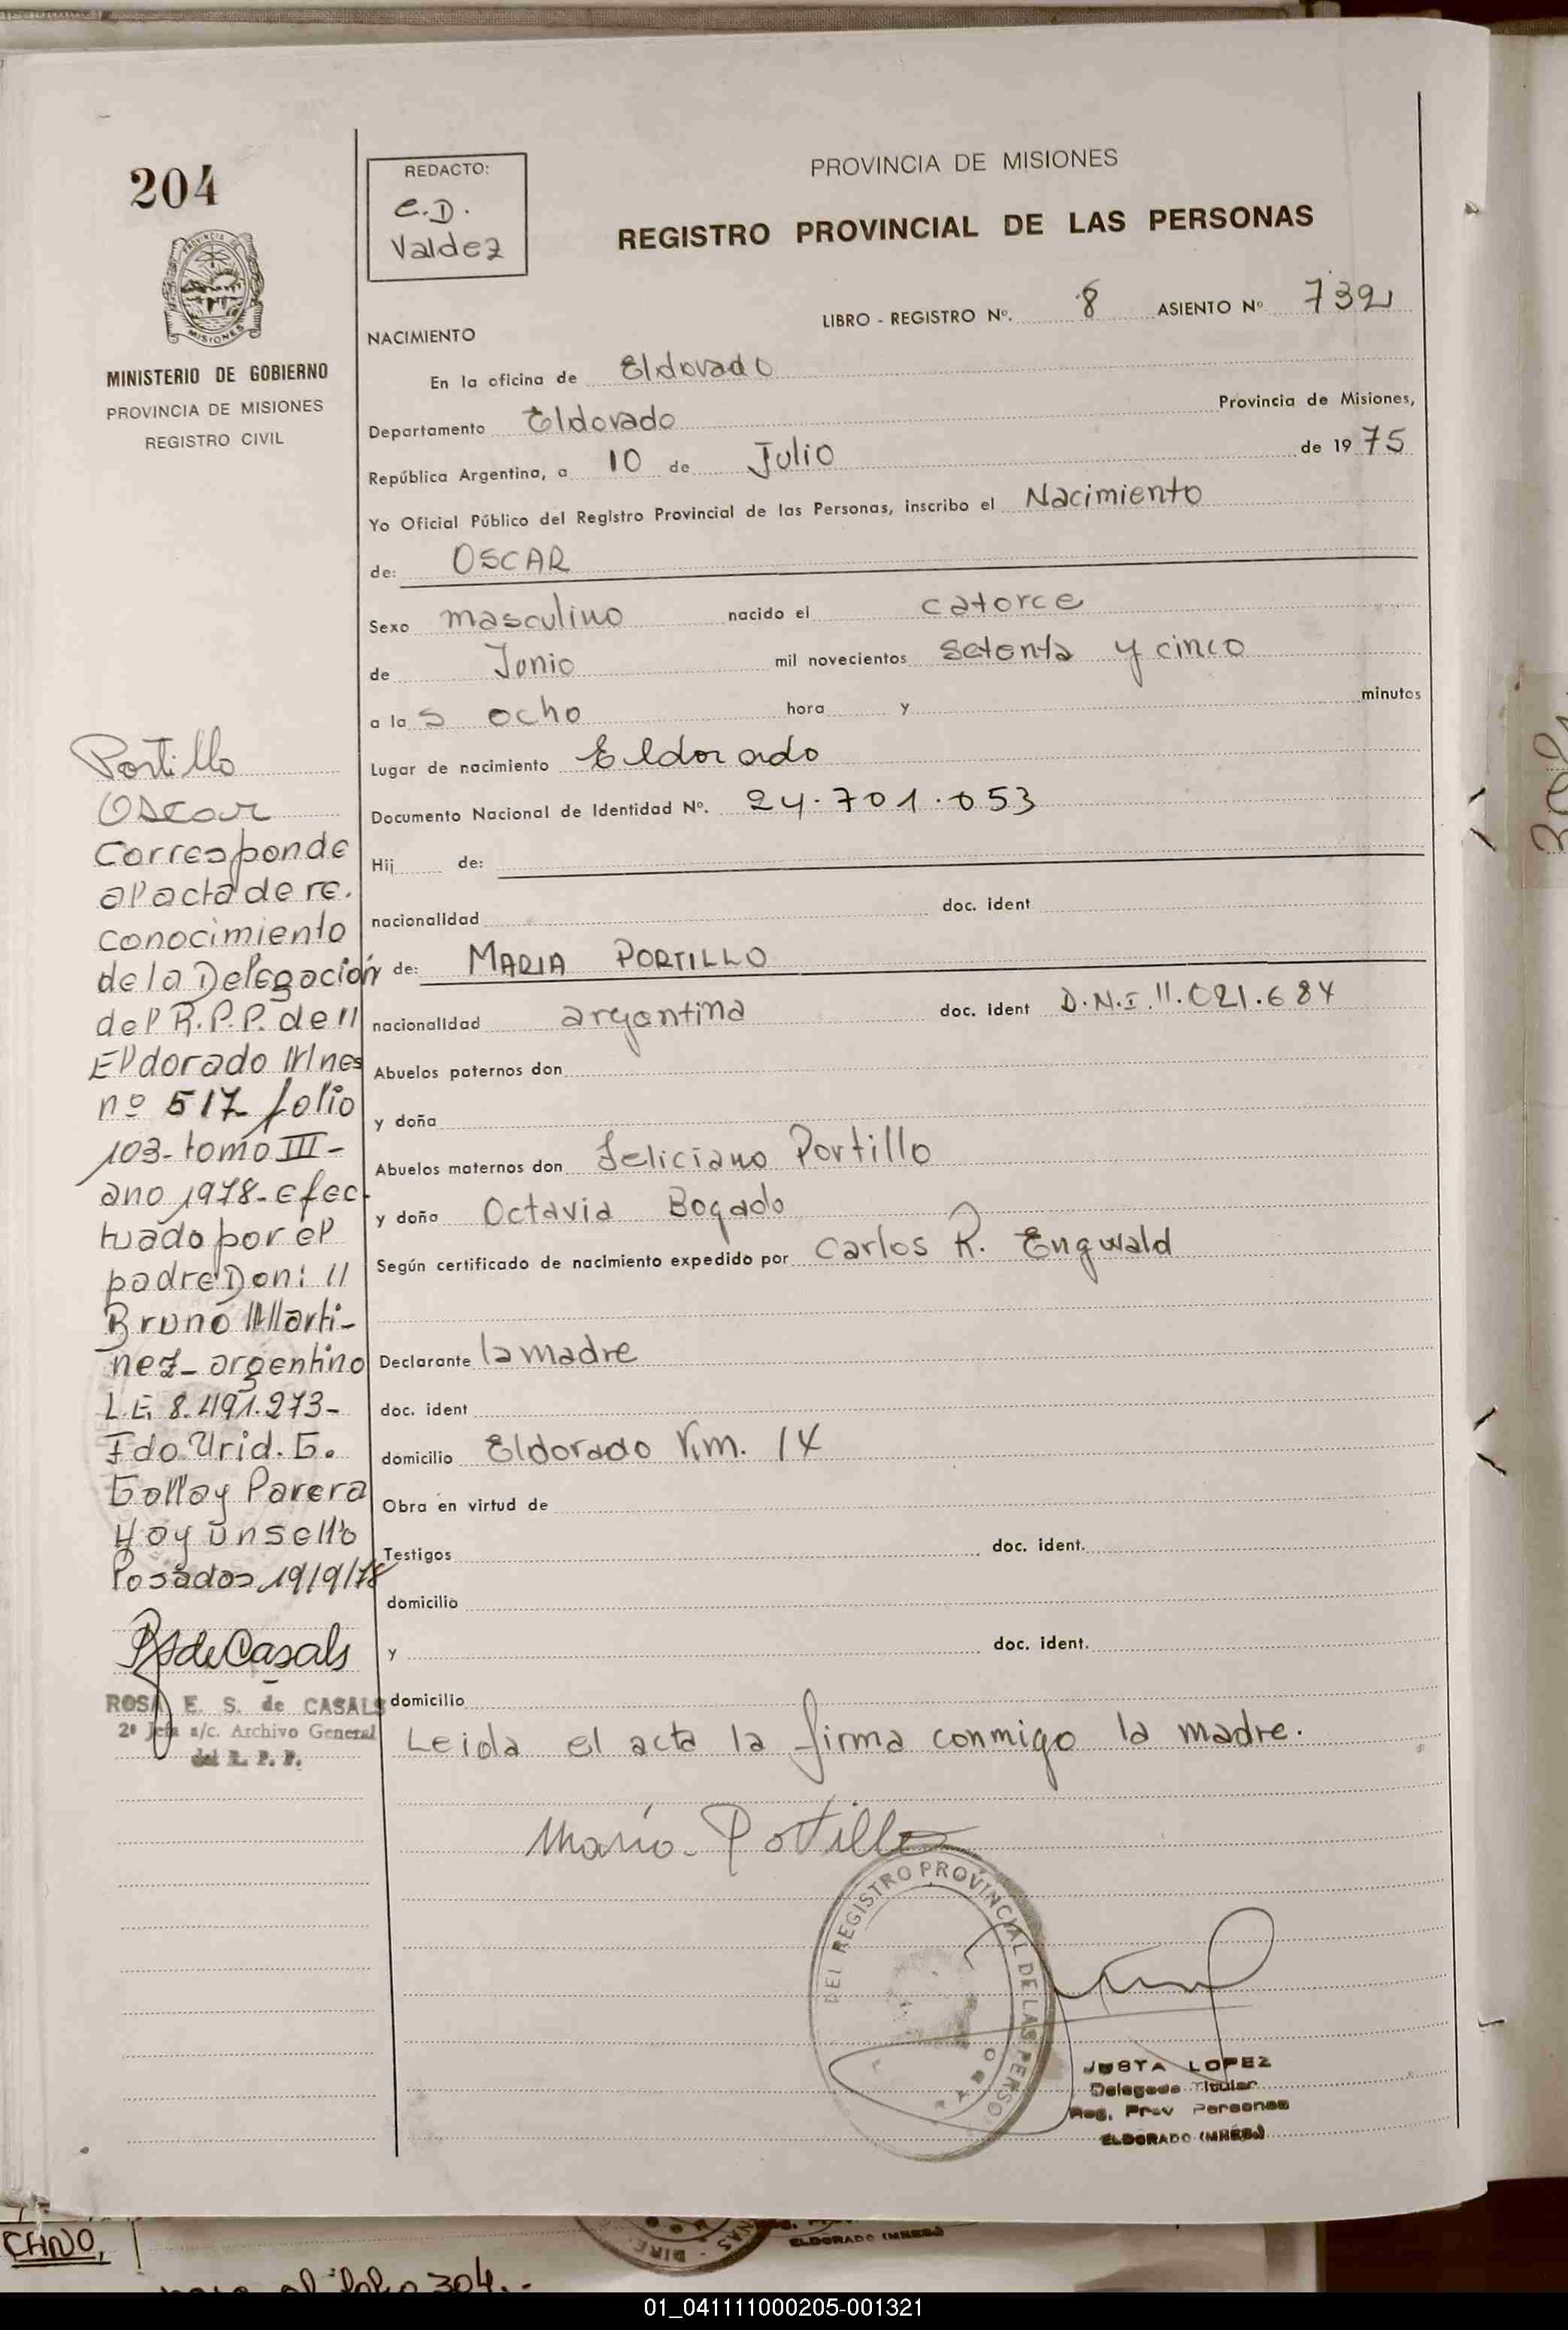 204
PROVINCIA DE MISIONES
MINISTERIO DE GOBIERNO
PROVINCIA DE MISIONES
REGISTRO CIVIL
Portillo
Oscar
Corresponde
al acta de re.
conocimiento
de la Delegación
del R.P.P. de //
Eldorado Mnes
nº 517 folio
103- tomo III-
ano 1978- efec-
tuado por el
padre Don: //
Bruno Marti-
nez- argentino
L.E. 8.491.273-
Fdo.
Hay un sello
Posadas 19/9/78
RSdeCasals
ROSA E. S. de CASALS
2ª Jefa a/c. Archivo General
del R. P. P.
REDACTO:
C.D.
Valdez
PROVINCIA DE MISIONES
REGISTRO PROVINCIAL DE LAS PERSONAS
LIBRO - REGISTRO Nº. 8 ASIENTO Nº 739
NACIMIENTO
En la oficina de Eldorado
Departamento Eldorado Provincia de Misiones,
República Argentina, a 10 de Julio de 1975
Yo Oficial Público del Registro Provincial de las Personas, inscribo el Nacimiento
de: OSCAR
Sexo masculino nacido el catorce
de Junio mil novecientos setenta y cinco
a las ocho hora y minutos
Lugar de nacimiento Eldorado
Documento Nacional de Identidad Nº. 24.701.053
Hij de:
nacionalidad doc. ident
de: MARIA PORTILLO
nacionalidad argentina doc. ident D.N.I. 11.021.684
Abuelos paternos don
y doña
Abuelos maternos don Feliciano Portillo
y doña Octavia Bogado
Según certificado de nacimiento expedido por Carlos R. Engwald
Declarante la madre
doc. ident
domicilio Eldorado Km. 14
Obra en virtud de
Testigos doc. ident.
domicilio
y doc. ident.
domicilio
Leida el acta la firma conmigo la madre.
María Portillo
DEL REGISTRO PROVINCIAL DE LAS PERSO
JUSTA LOPEZ
Delegada Titular
Reg. Prov Personas
ELDORADO (MNES.)
CANO,
ELDORADO (MNES.)
folio 304.-
01_041111000205-001321